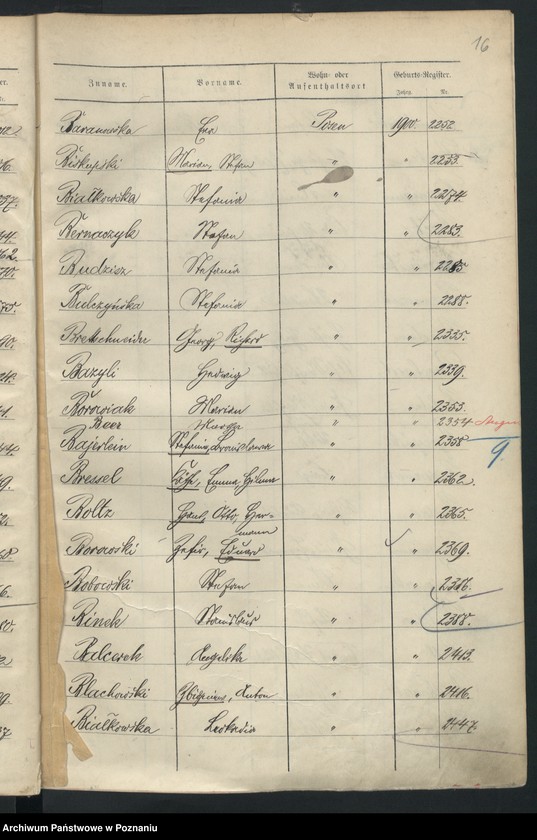 16
Zuname. Vorname. Wohn- oder Aufenthaltsort Geburts-Register.
Jahrg. Nr.
Baranowska Eva Posen 1900. 2252
Biskupski Marian, Stefan " " 2233.
Białkowska Stefania " " 2274.
Bernaczyk Stefan " " 2283.
Budzisz Stefania " " 2285
Bulczyńska Stefania " " 2288.
Brettschneider Georg, Richard " " 2335.
Bazyli Hedwig " " 2339.
Borowiak Marian " " 2353.
Beer " " 2354
Bajerlein Stefania, Bronislawa " " 2358
9.
Bressel Emma, Helma " " 2362.
Boltz Paul, Otto, Her-
mann " " 2365.
Borowski Eduard " " 2369.
Bobowski Stefan " " 2386.
Binek Stanislaus " " 2388.
Balcerek Angelika " " 2413.
Blachowski Zbigniew, Anton " " 2416.
Białkowska Leokadia " " 2447.
Archiwum Państwowe w Poznaniu